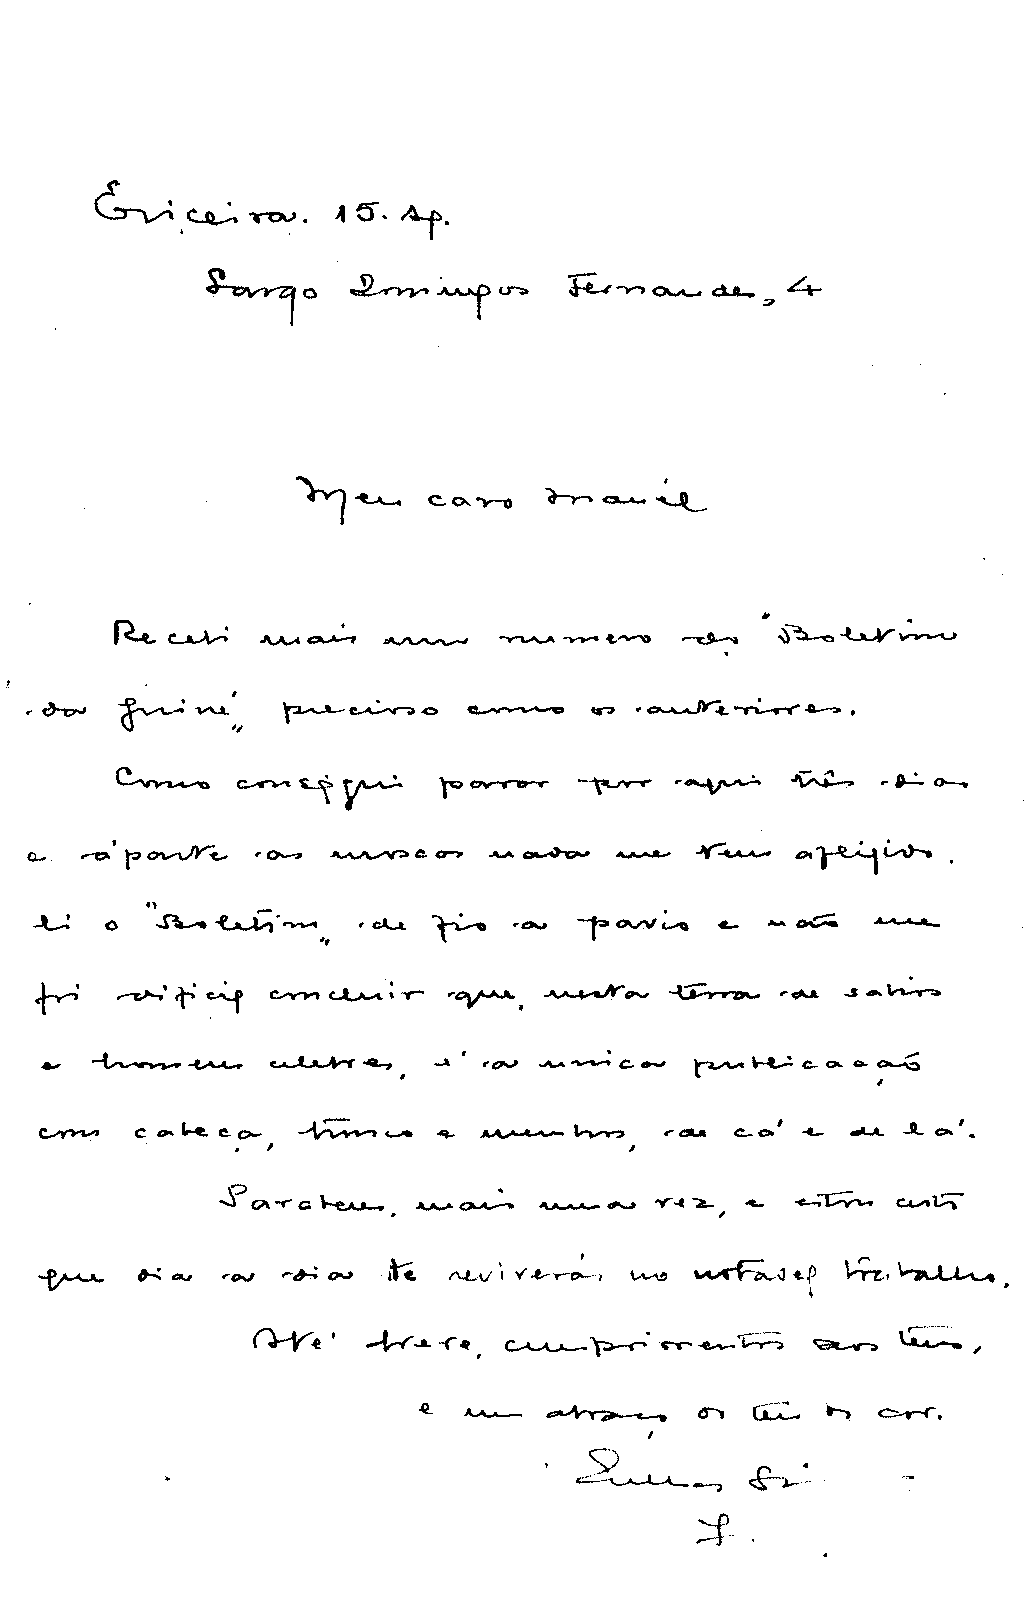 Ericeira. 15. Ap.
Largo Domingos Fernandes, 4
Meu caro Manuel
Recebi mais um numero do "Boletim
da Guiné" precioso como os anteriores.
Como consegui parar por aqui três dias
e á parte as moscas nada me tem afligido,
li o "Boletim" de fio a pavio e não me
foi dificil concluir que, nesta terra de sabios
e homens celebres, é a unica publicação
com cabeça, tronco e membros, de cá e de lá.
Parabens, mais uma vez, e estou certo
que dia a dia se reviverá no notavel trabalho.
Até breve, cumprimentos aos teus,
e um abraço do teu do cor.